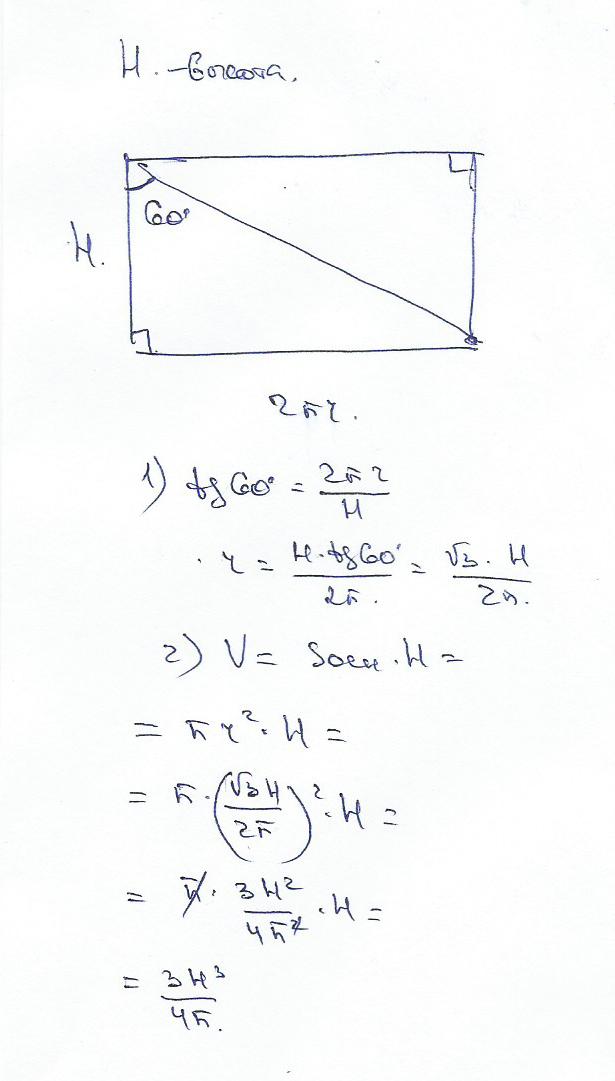 H. – высота.
60°
H.
2πr.
1) tg60° = 2πr / H
r = H·tg60° / 2π. = √3 · H / 2π.
2) V = Sосн · H =
= πr² · H =
= π · (√3H / 2π)² · H =
= π · 3H² / 4π² · H =
= 3H³ / 4π.